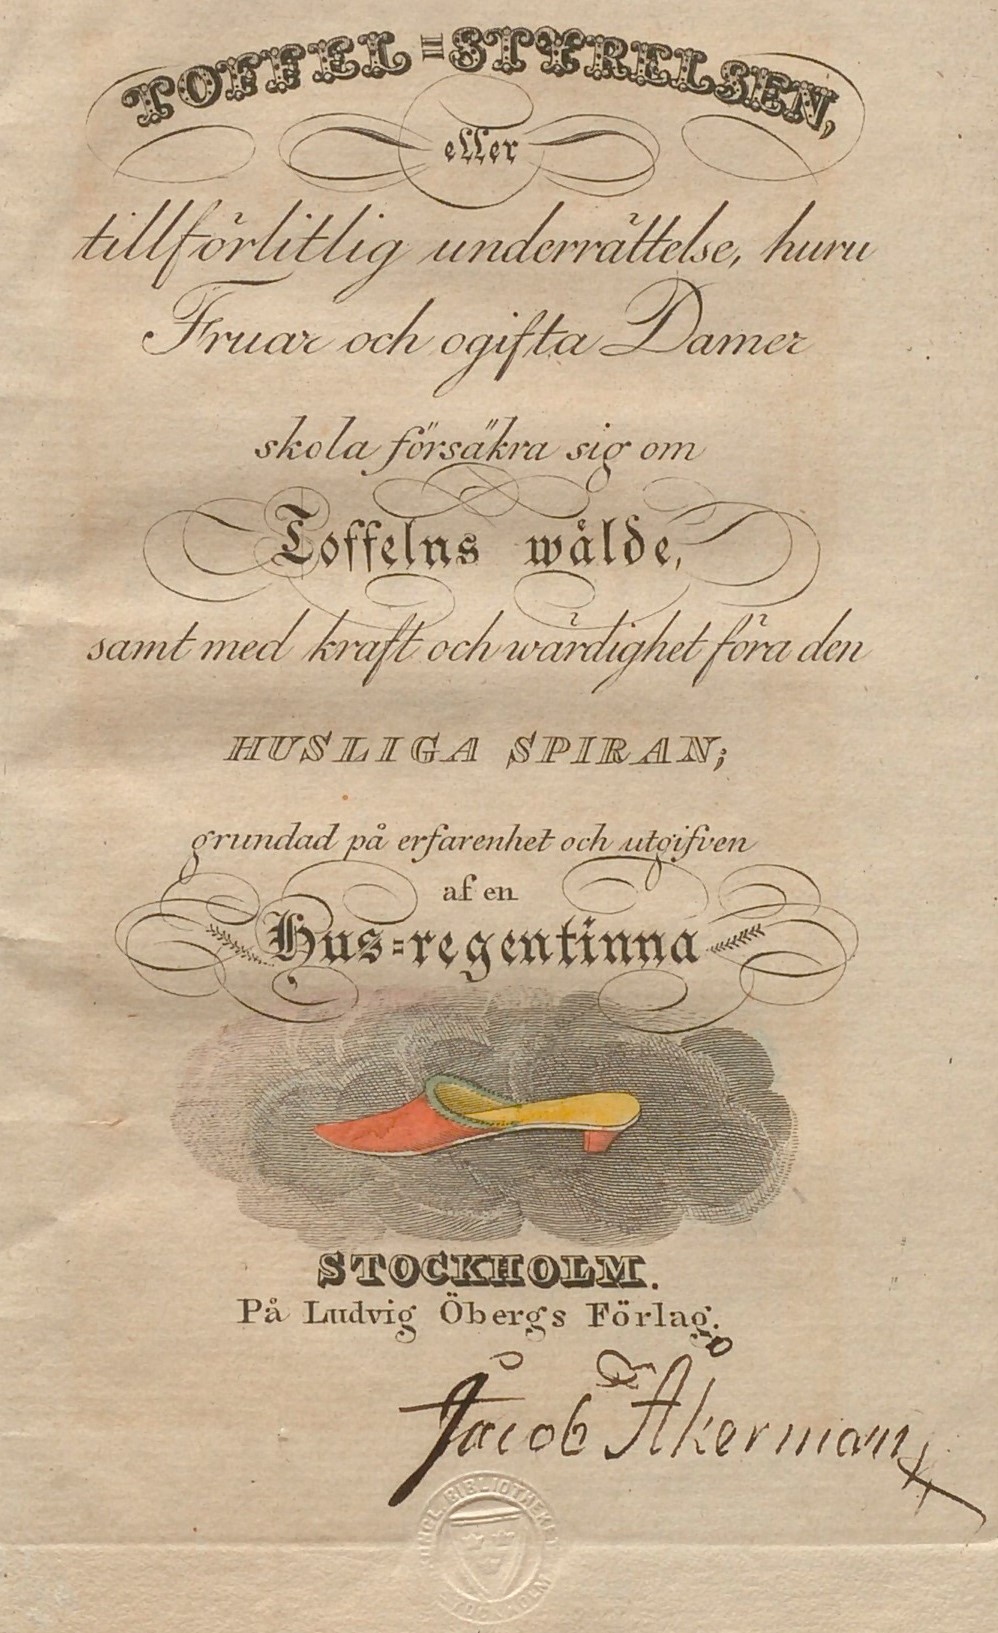 TOFFEL=STYRELSEN,
eller
tillförlitlig underrättelse, huru
Fruar och ogifta Damer
skola försäkra sig om
Toffelns wälde,
samt med kraft och wärdighet föra den
HUSLIGA SPIRAN;
grundad på erfarenhet och utgifven
af en
Hus=regentinna
STOCKHOLM.
På Ludvig Öbergs Förlag.
Jacob Åkerman
KUNGL. BIBLIOTHEKET
STOCKHOLM